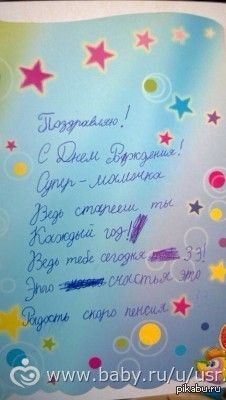 Поздравляю!
С Днем Рождения!
Супер-мамочка
Ведь стареешь ты
Каждый год!
Ведь тебе сегодня 33!
Это счастья это
Радость скоро пенсия
www.baby.ru/u/usr
pikabu.ru